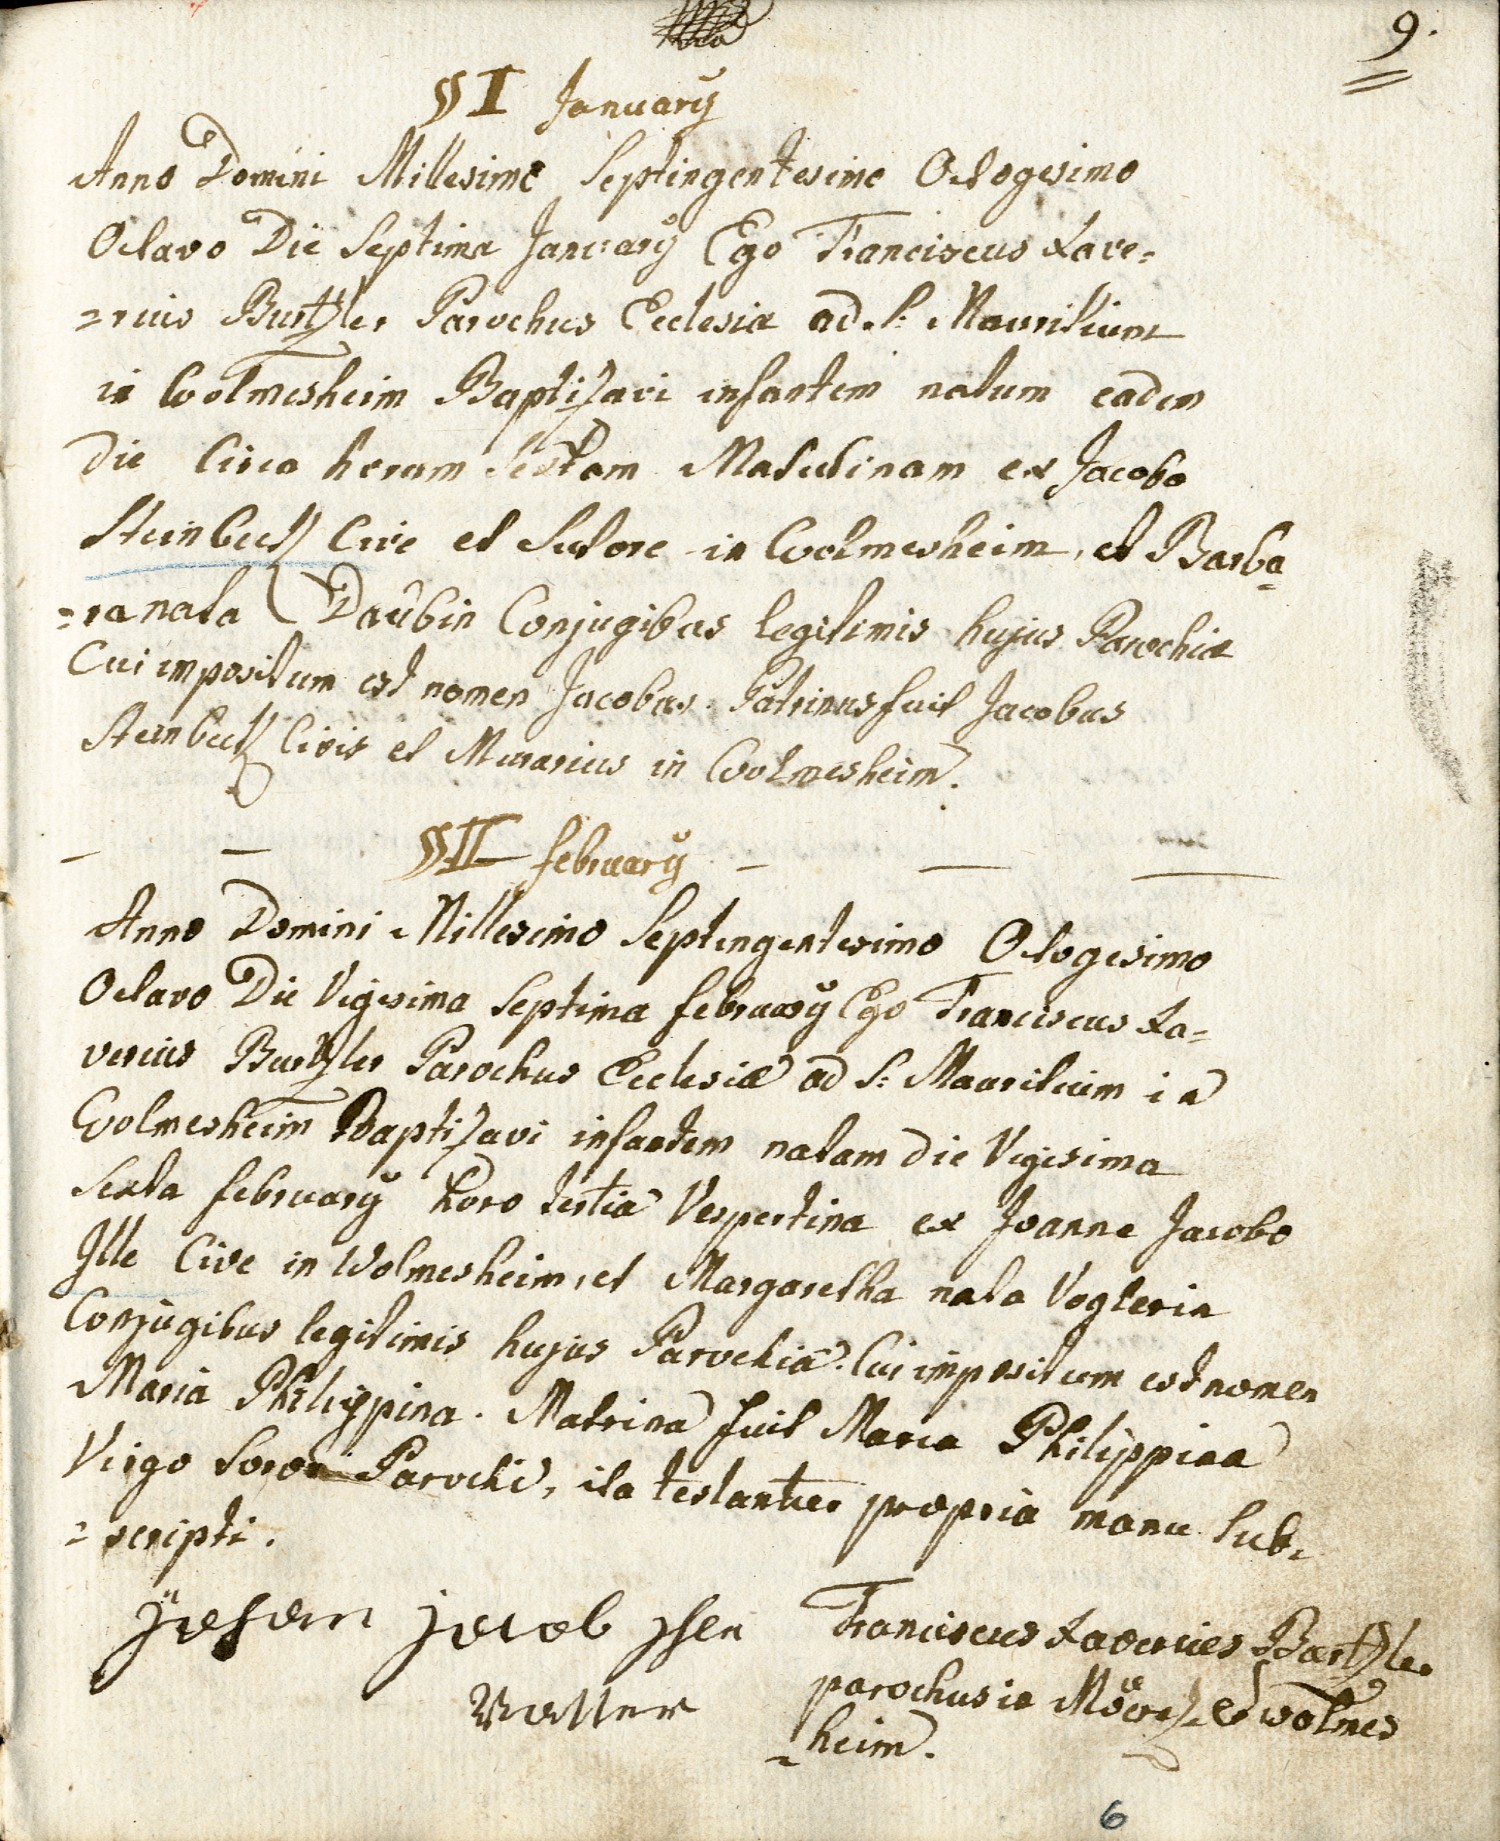 9.
§ I Januarÿ
Anno Domini Millesimo Septingentesimo Octogesimo
Octavo Die Septima Januarÿ Ego Franciscus Xave=
=rius Burtzler Parochus Ecclesiæ ad S: Maurilium
in Wolmesheim Baptizavi infantem natum eadem
die Circa horam Sextam Matutinam ex Jacobo
Steinbuch Cive et Sutore in Wolmesheim, et Barba=
=ra nata Daübin Conjugibus legitimis hujus Parochiæ
Cui impositum est nomen Jacobus. Patrinus fuit Jacobus
Civis et Murarius in Wolmesheim.
§ II februarÿ
Anno Domini Millesimo Septingentesimo Octogesimo
Octavo Die Vigesima Septima februarÿ Ego Franciscus Xa=
verius Burtzler Parochus Ecclesiæ ad S: Maurilium in
Wolmesheim Baptizavi infantem natam die Vigesima
Sexta februarÿ hora tertia Vespertina ex Joanne Jacobo
Ille Cive in Wolmesheim, et Margaretha nata Voglerin
Conjugibus legitimis hujus Parochiæ. Cui impositum est nomen
Maria Philippina. Matrina fuit Maria Philippina
Virgo Soror Parochi, ita testantur propria manu sub=
=scripti.
jacob
Vatter
Franciscus Xaverius Burtzler
parochus in et wolmes
=heim.
6